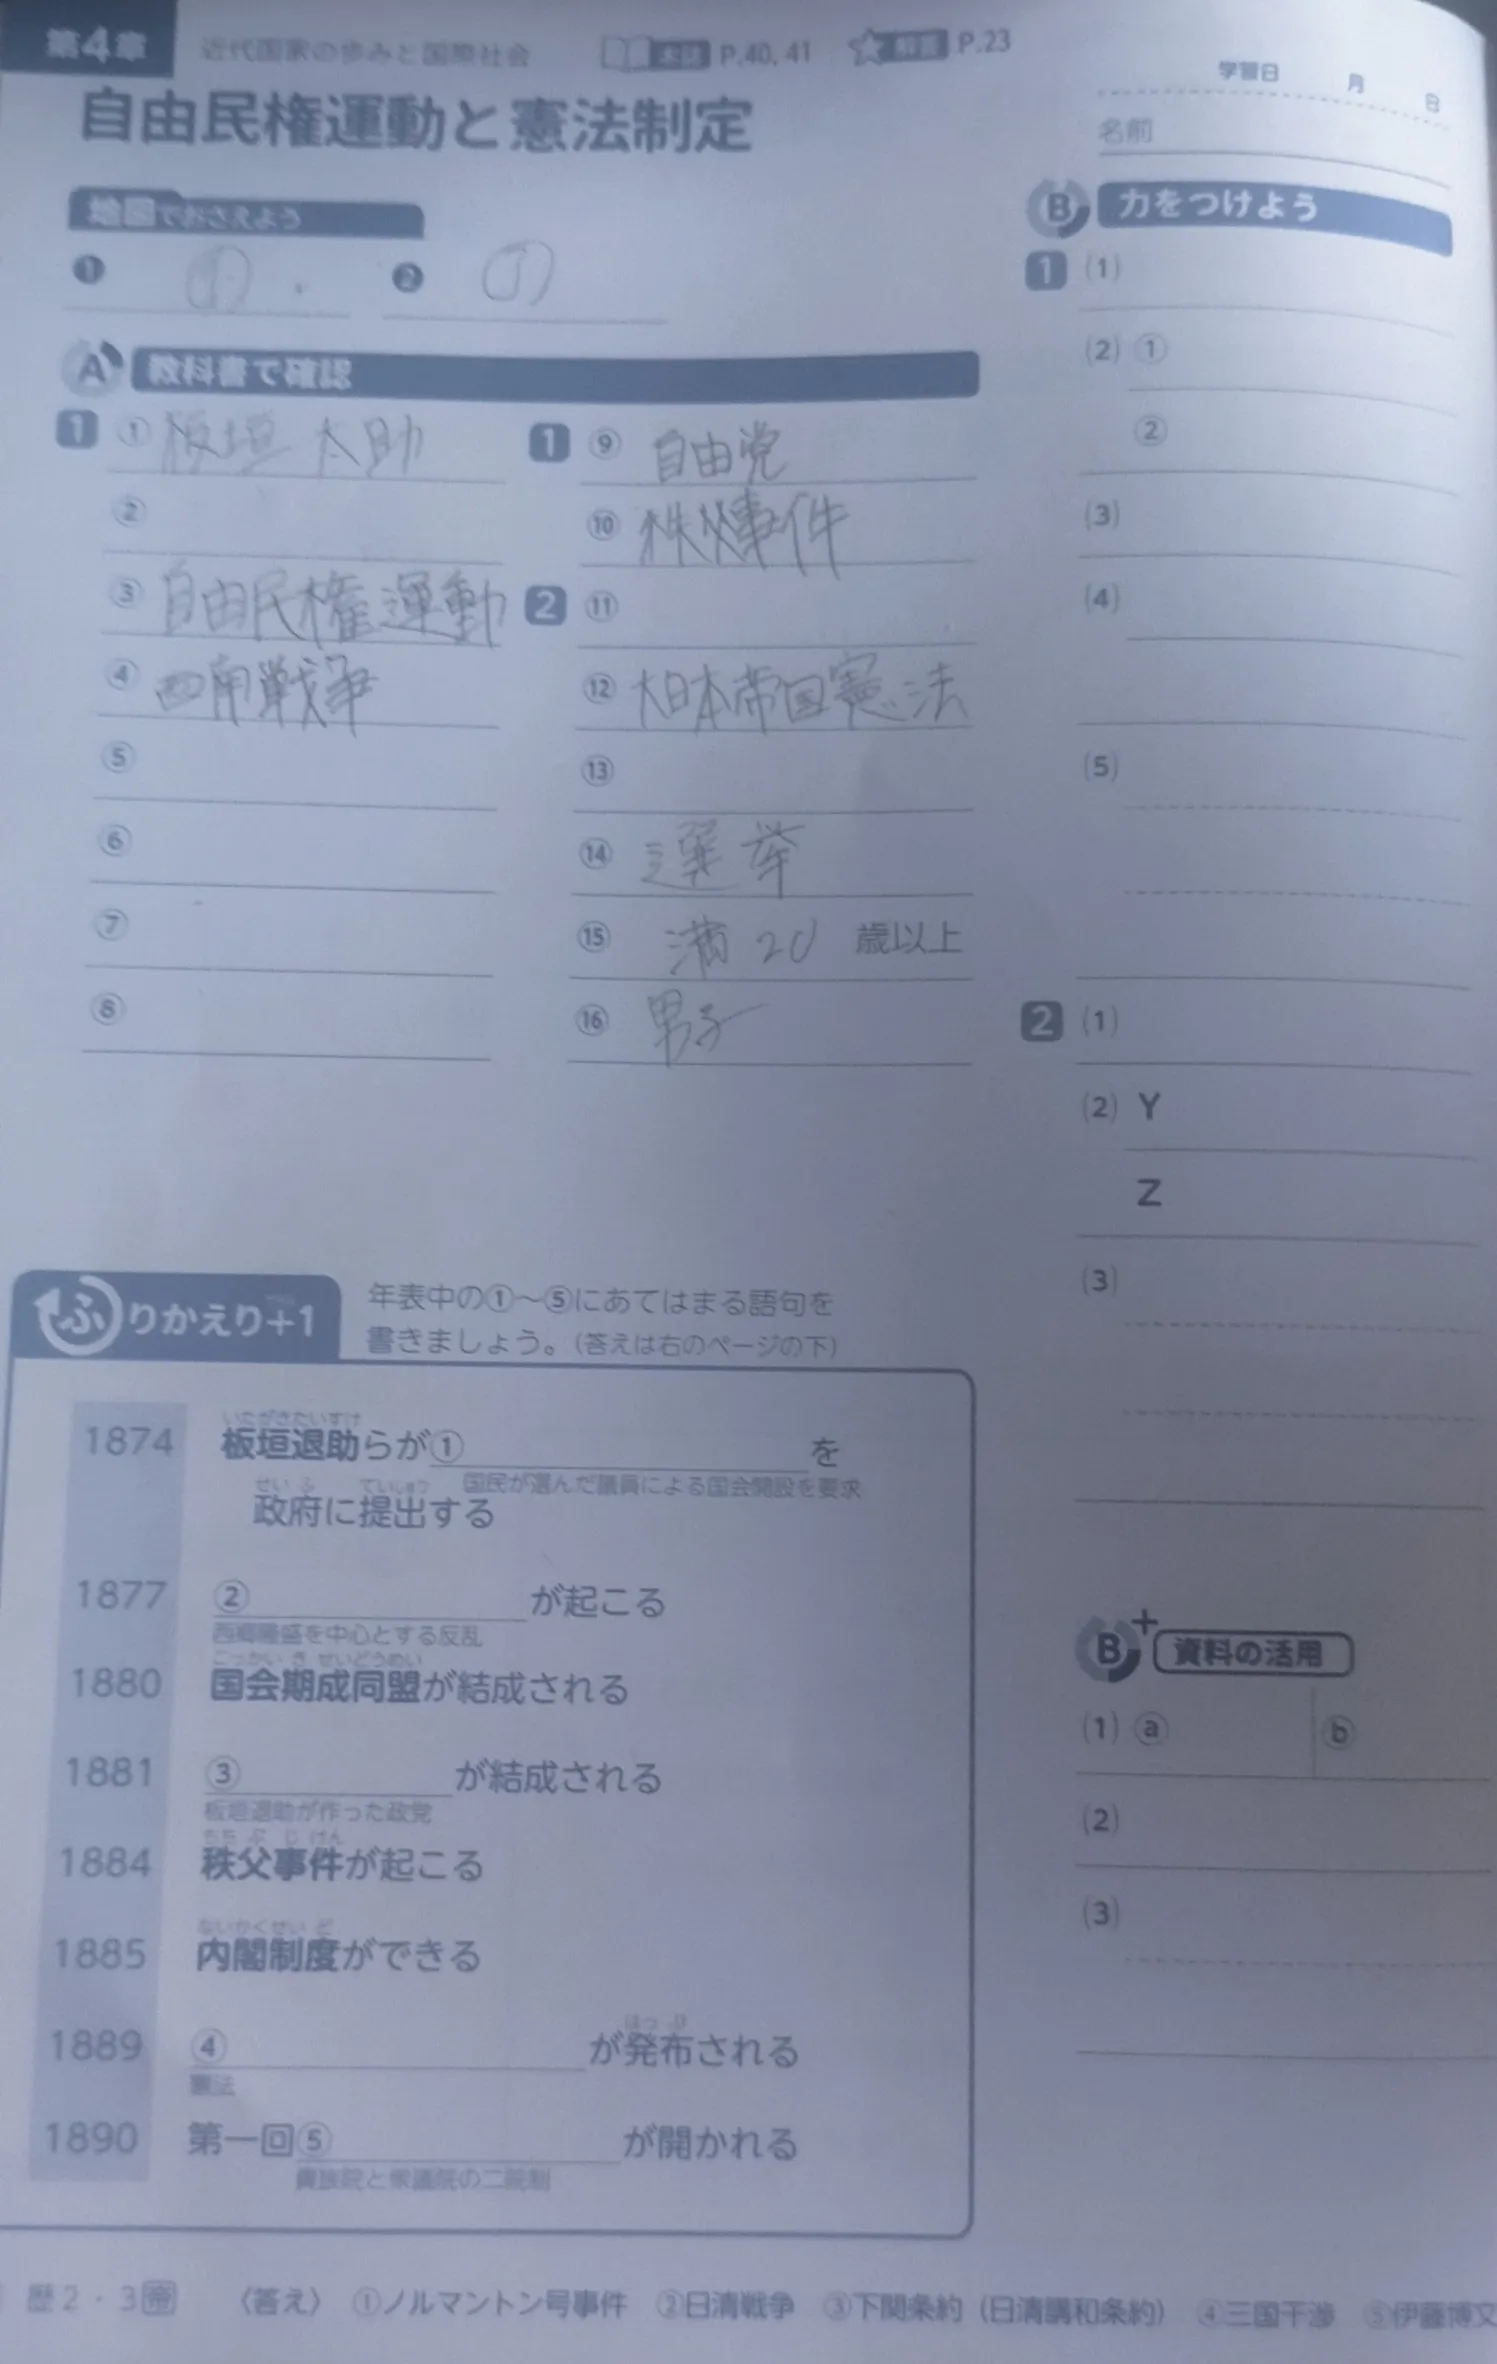 第4章 近代国家の歩みと国際社会 本誌 P.40, 41 解答 P.23
自由民権運動と憲法制定
学習日 月 日
名前
地図でおさえよう
❶ ① ❷ ①
A 教科書で確認
1
① 板垣太助
②
③ 自由民権運動
④ 西南戦争
⑤
⑥
⑦
⑧
1
⑨ 自由党
⑩ 秩父事件
2
⑪
⑫ 大日本帝国憲法
⑬
⑭ 選挙
⑮ 満20 歳以上
⑯ 男子
B 力をつけよう
1 (1)
(2) ①
②
(3)
(4)
(5)
2 (1)
(2) Y
Z
(3)
B+ 資料の活用
(1) ⓐ ⓑ
(2)
(3)
ふりかえり+1
年表中の①〜⑤にあてはまる語句を
書きましょう。(答えは右のページの下)
いたがきたいすけ
1874 板垣退助らが① を
国民が選んだ議員による国会開設を要求
せいふ ていしゅつ
政府に提出する
1877 ② が起こる
西郷隆盛を中心とする反乱
こっかいきせいどうめい
1880 国会期成同盟が結成される
1881 ③ が結成される
板垣退助が作った政党
ちちぶじけん
1884 秩父事件が起こる
ないかくせいど
1885 内閣制度ができる
はっぷ
1889 ④ が発布される
憲法
1890 第一回⑤ が開かれる
貴族院と衆議院の二院制
歴2・3帝 〈答え〉 ①ノルマントン号事件 ②日清戦争 ③下関条約(日清講和条約) ④三国干渉 ⑤伊藤博文